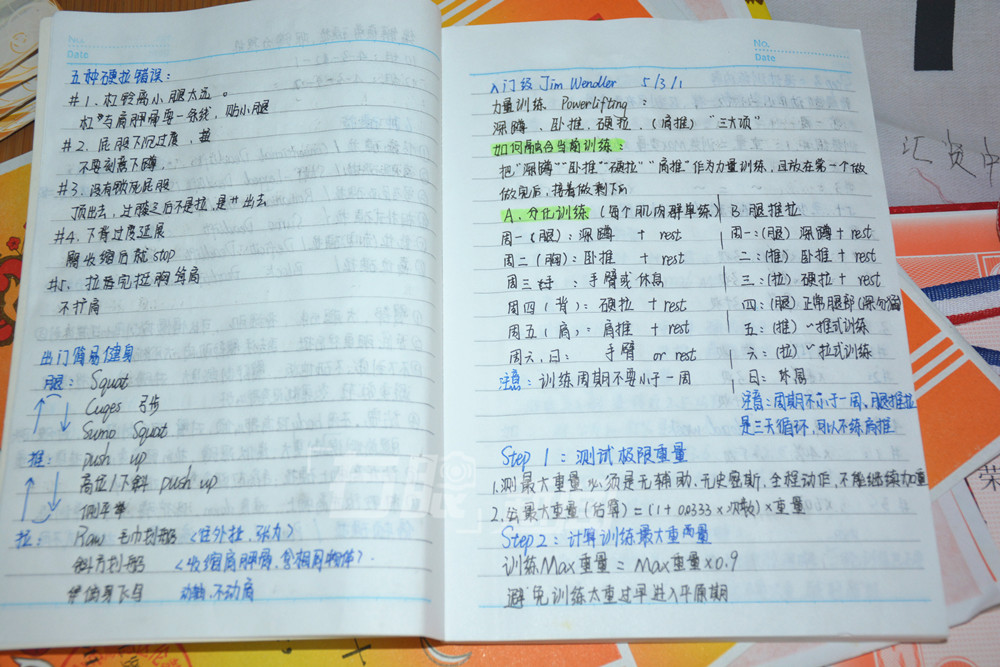 No.
Date
五种硬拉错误：
#1、杠铃离小腿太远。
杠铃与肩胛骨要一条线，贴小腿
#2、屁股下沉过度，
不要刻意下蹲，
#3、没有锁死屁股
顶出去，过膝之后不是拉，是 出去
#4、下背过度延展
臀收缩后就stop
#5、拉后完挺胸
不扩肩
出门简易健身
腿： Squat
弓步
Sumo Squat
推： push up
高位/下斜 push up
侧平举
拉： Row 毛巾划船 <往外拉，张力>
斜方划船 <收缩肩胛肩，  物体>.
俯身飞鸟 动 ，不动肩
No.
Date
入门级 Jim Wendler 5/3/1
力量训练 Powerlifting：
深蹲、卧推、硬拉、(肩推) “三大项”
如何融合当前训练：
把“深蹲”“卧推”“硬拉”“肩推”作为力量训练，且放在第一个做
做完后，接着做剩下的
A、分化训练 (每个肌肉群单练) B. 腿推拉
周一(腿)：深蹲 + rest 周一：(腿) 深蹲 + rest
周二(胸)：卧推 + rest 二：(推) 卧推 + rest
周三 ： 手臂或休息 三：(拉) 硬拉 + rest
周四(背)：硬拉 + rest 四：(腿) 正常腿部(深 )
周五(肩)：肩推 + rest 五：(推) ~推式训练
周六、日： 手臂 or rest 六：(拉) ~拉式训练
注意：训练周期不要小于一周 日：休息
注意：周期不小于一周，腿推拉
是三天循环，可以不练肩推
Step 1：测试极限重量
1.测最大重量必须是无辅助、无史密斯、全程动作，不能继续加重
2.公最大重量(估算)=(1+0.0333×次数)×重量
Step2：计算训练最大重两量
训练Max重量 = Max重量×0.9
避免训练太重过早进入平原期
汇贤
荣